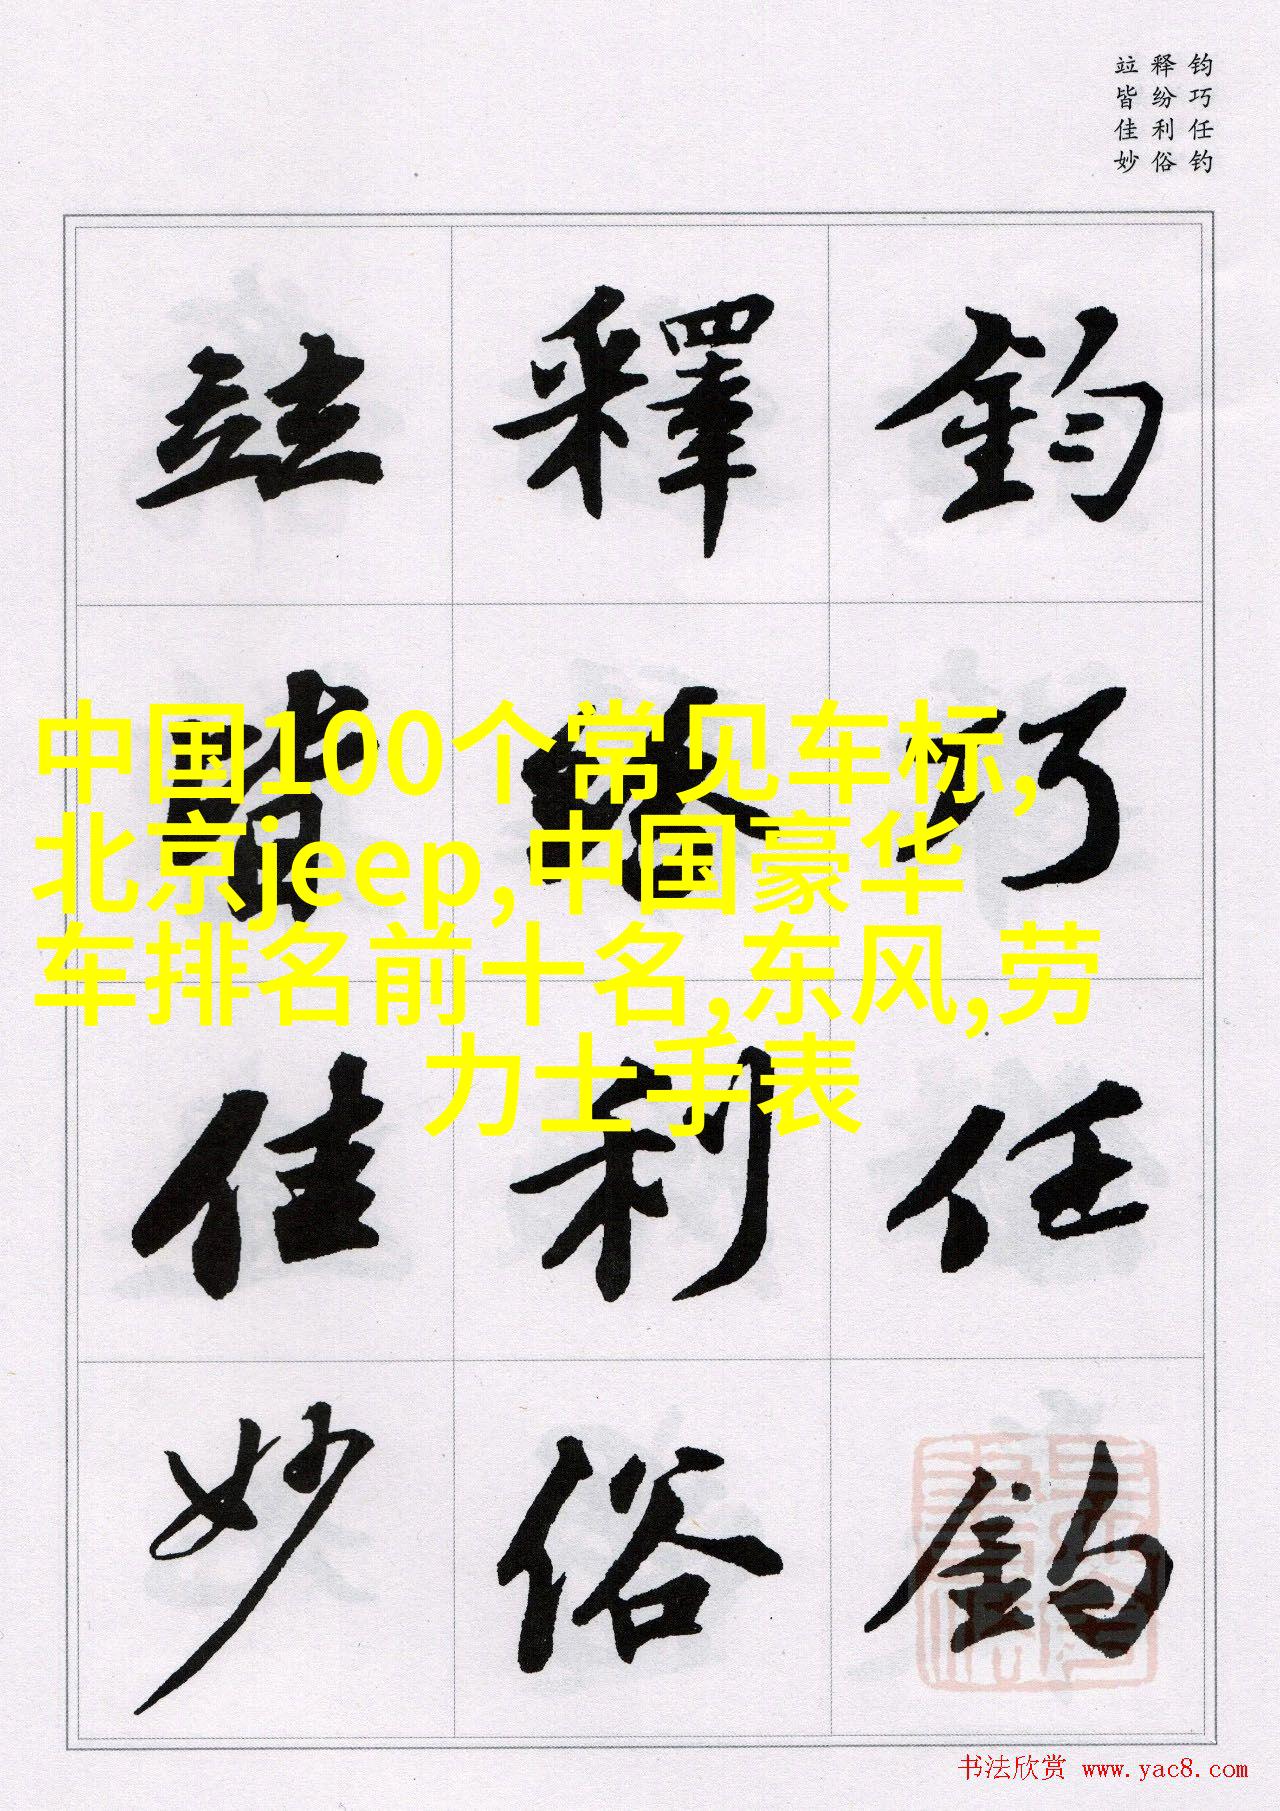 钧巧任钓
释纷利俗
竝皆佳妙
鈞巧任釣
釋紛利俗
竝皆佳妙
中国100个常见车标,
北京jeep,中国豪华
车排名前十名,东风,劳
力士手表
书法欣赏 www.yac8.com